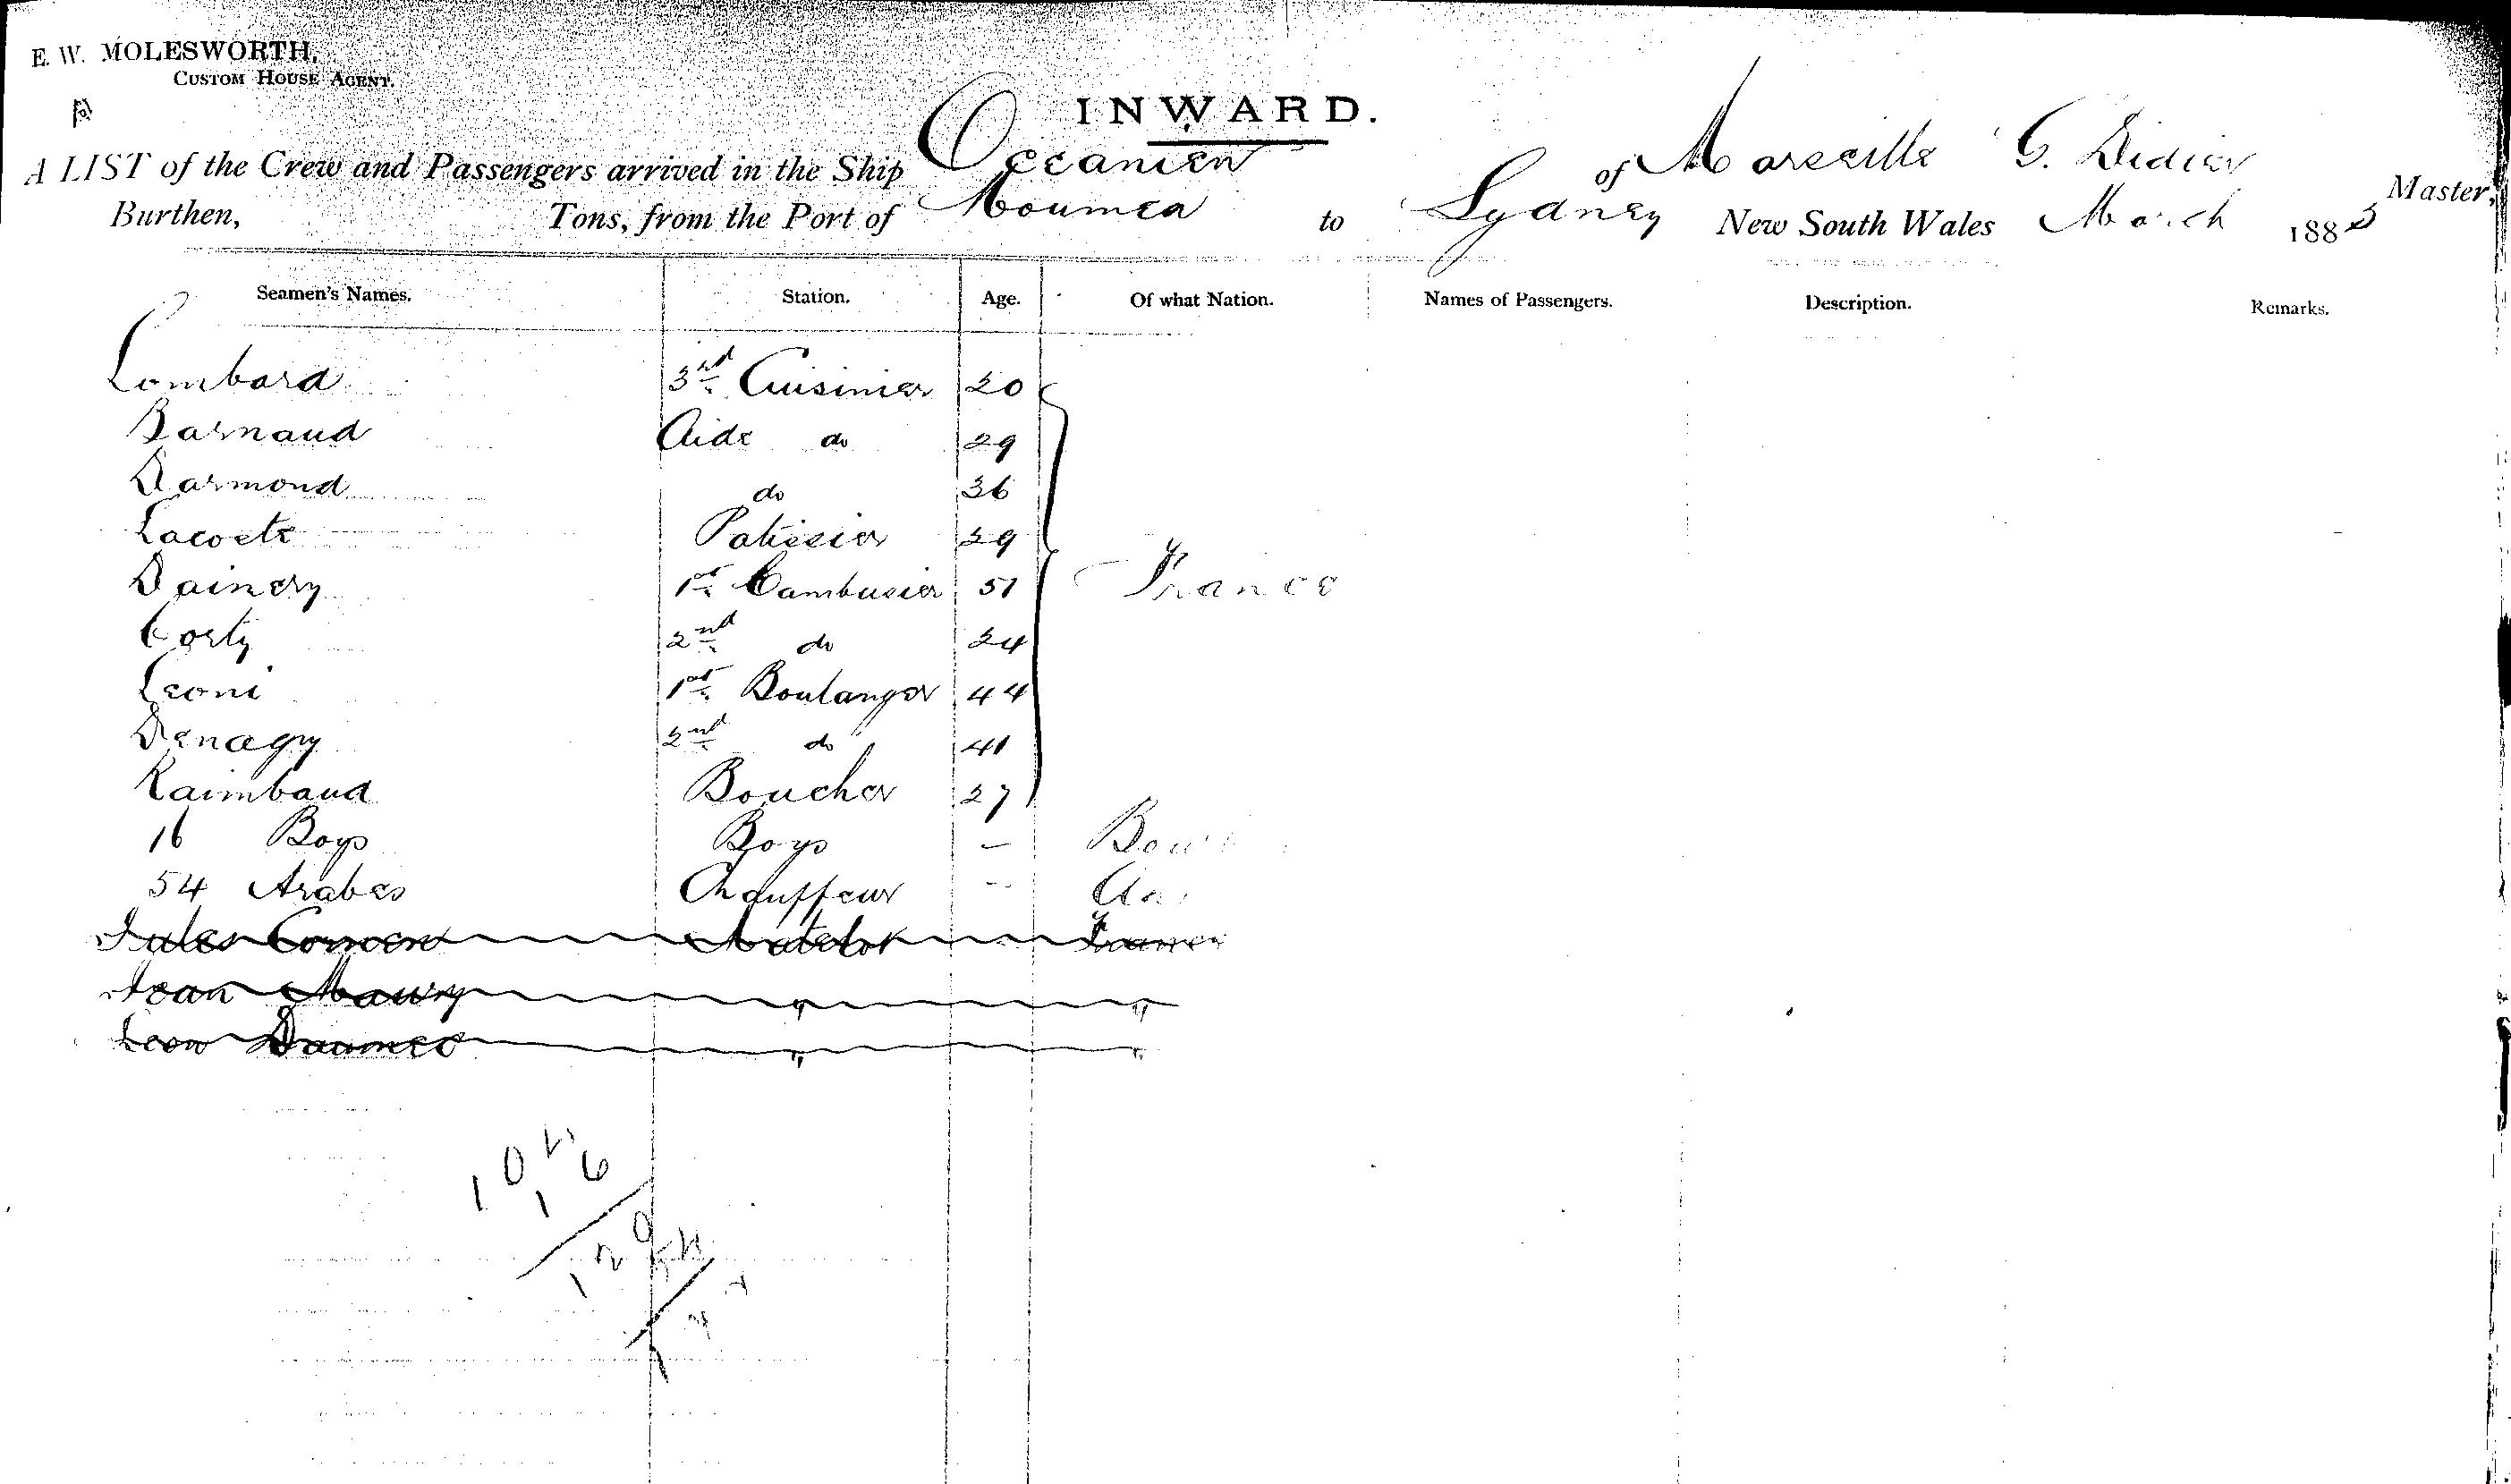 E. W. MOLESWORTH,
CUSTOM HOUSE AGENT.
INWARD.
A LIST of the Crew and Passengers arrived in the Ship Oceanien of Marseille G. Didier Master,
Burthen, Tons, from the Port of Noumea to Sydney New South Wales March 188
Seamen's Names. Station. Age. Of what Nation. Names of Passengers. Description. Remarks.
Lombard 3rd Cuisinier 20
Barnaud Aide do 29
Darmond do 36
Lacoste Patissier 29
Dainery 1st Cambusier 51 France
Corty 2nd do 24
Leoni 1st Boulanger 44
Denagry 2nd do 41
Raimbaud Boucher 27
16 Boys Boys –
54 Arabes Chauffeur –
Jules Matelot France
Jean Maury " "
Leon " "
102
16
120
54